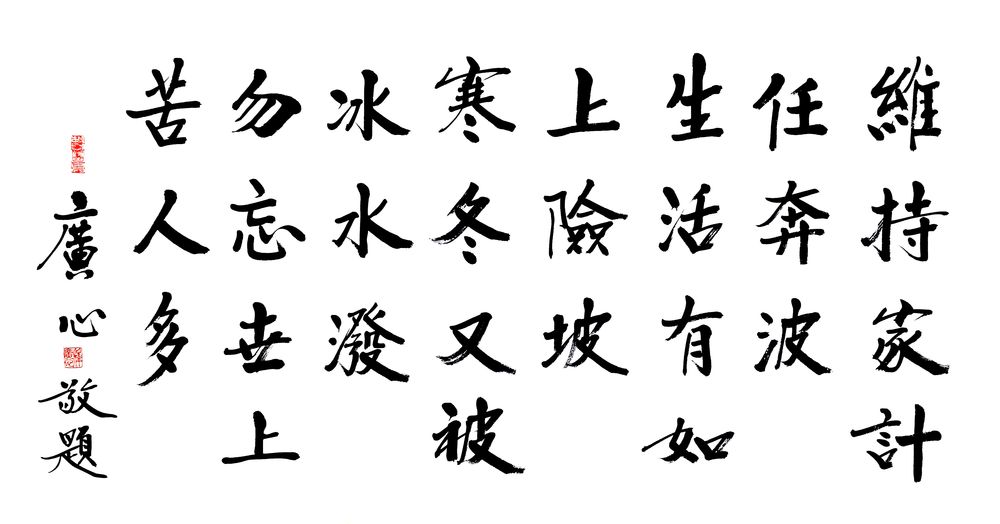 維持家計
任奔波
生活有如
上險坡
寒冬又被
冰水潑
勿忘世上
苦人多
廣心敬題